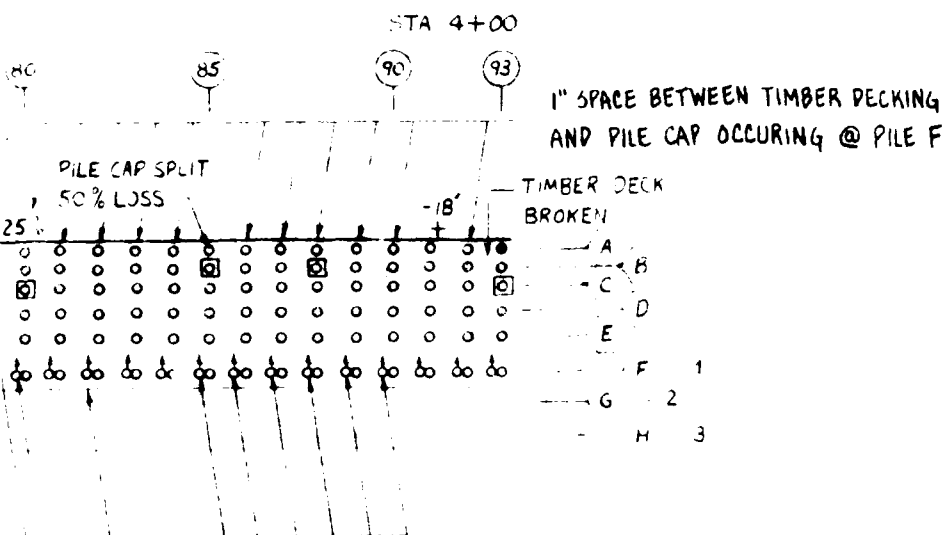 STA 4+00
80 85 90 93
1" SPACE BETWEEN TIMBER DECKING
AND PILE CAP OCCURING @ PILE F
PILE CAP SPLIT
50% LOSS
TIMBER DECK
BROKEN
-18'
25
A
B
C
D
E
F 1
G 2
H 3